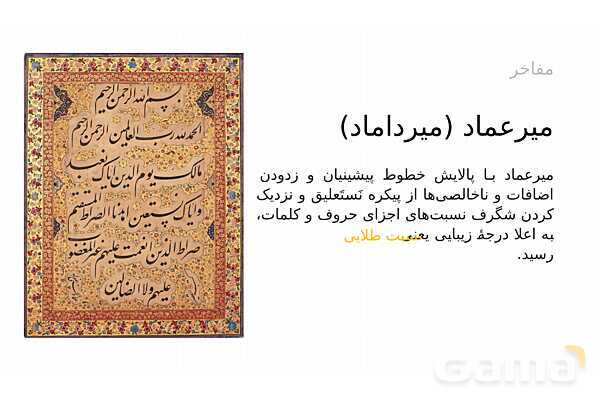 مفاخر
میرعماد (میرداماد)
میرعماد با پالایش خطوط پیشینیان و زدودن
اضافات و ناخالصی‌ها از پیکره نَستَعلیق و نزدیک
کردن شگرف نسبت‌های اجزای حروف و کلمات،
به اعلا درجهٔ زیبایی یعنی نسبت طلایی
رسید.
بسم الله الرحمن الرحیم
الحمدلله رب العالمین الرحمن الرحیم
مالک یوم الدین ایاک نعبد
وایاک نستعین اهدنا الصراط المستقیم
صراط الذین انعمت علیهم غیر المغضوب
علیهم ولا الضالین
Gama